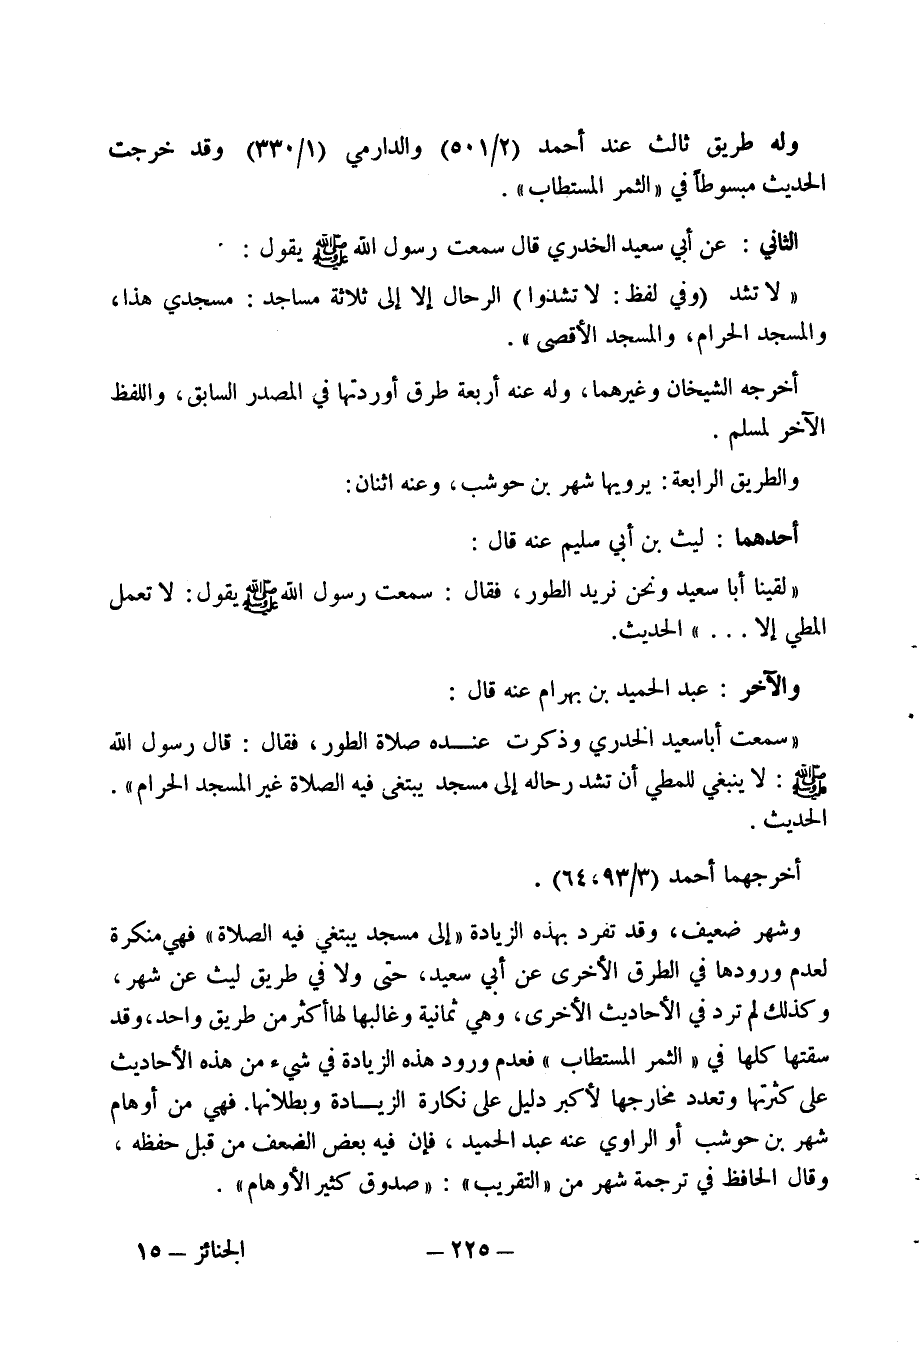 وله طريق ثالث عند أحمد (٥٠١/٢) والدارمي (٣٣٠/١) وقد خرجت
الحديث مبسوطاً في «الثمر المستطاب» .
الثاني : عن أبي سعيد الخدري قال سمعت رسول الله ﷺ يقول :
« لا تشد (وفي لفظ : لا تشدوا) الرحال إلا إلى ثلاثة مساجد : مسجدي هذا،
والمسجد الحرام، والمسجد الأقصى» .
أخرجه الشيخان وغيرهما، وله عنه أربعة طرق أوردتها في المصدر السابق، واللفظ
الآخر لمسلم .
والطريق الرابعة: يرويها شهر بن حوشب، وعنه اثنان:
أحدهما : ليث بن أبي سليم عنه قال :
«لقينا أبا سعيد ونحن نريد الطور، فقال : سمعت رسول الله ﷺ يقول: لا تعمل
المطي إلا . . . » الحديث.
والآخر : عبد الحميد بن بهرام عنه قال :
«سمعت أباسعيد الخدري وذكرت عنـــده صلاة الطور، فقال : قال رسول الله
ﷺ : لا ينبغي للمطي أن تشد رحاله إلى مسجد يبتغى فيه الصلاة غير المسجد الحرام» .
الحديث .
أخرجهما أحمد (٦٤،٩٣/٣) .
وشهر ضعيف، وقد تفرد بهذه الزيادة «إلى مسجد يبتغي فيه الصلاة» فهي منكرة
لعدم ورودها في الطرق الأخرى عن أبي سعيد، حتى ولا في طريق ليث عن شهر،
وكذلك لم ترد في الأحاديث الأخرى، وهي ثمانية وغالبها لها أكثر من طريق واحد، وقد
سقتها كلها في « الثمر المستطاب » فعدم ورود هذه الزيادة في شيء من هذه الأحاديث
على كثرتها وتعدد مخارجها لأكبر دليل على نكارة الزيـــادة وبطلانها. فهي من أوهام
شهر بن حوشب أو الراوي عنه عبد الحميد ، فإن فيه بعض الضعف من قبل حفظه ،
وقال الحافظ في ترجمة شهر من «التقريب» : «صدوق كثير الأوهام» .
– ٢٢٥ –
الجنائز – ١٥